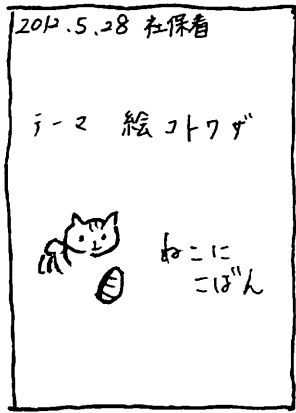 2012.5.28 社保者
テーマ 絵コトワザ
ねこに
こばん